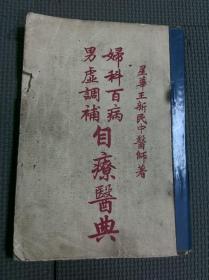 星華王新民中醫師著
婦科百病
男虛調補
自療醫典